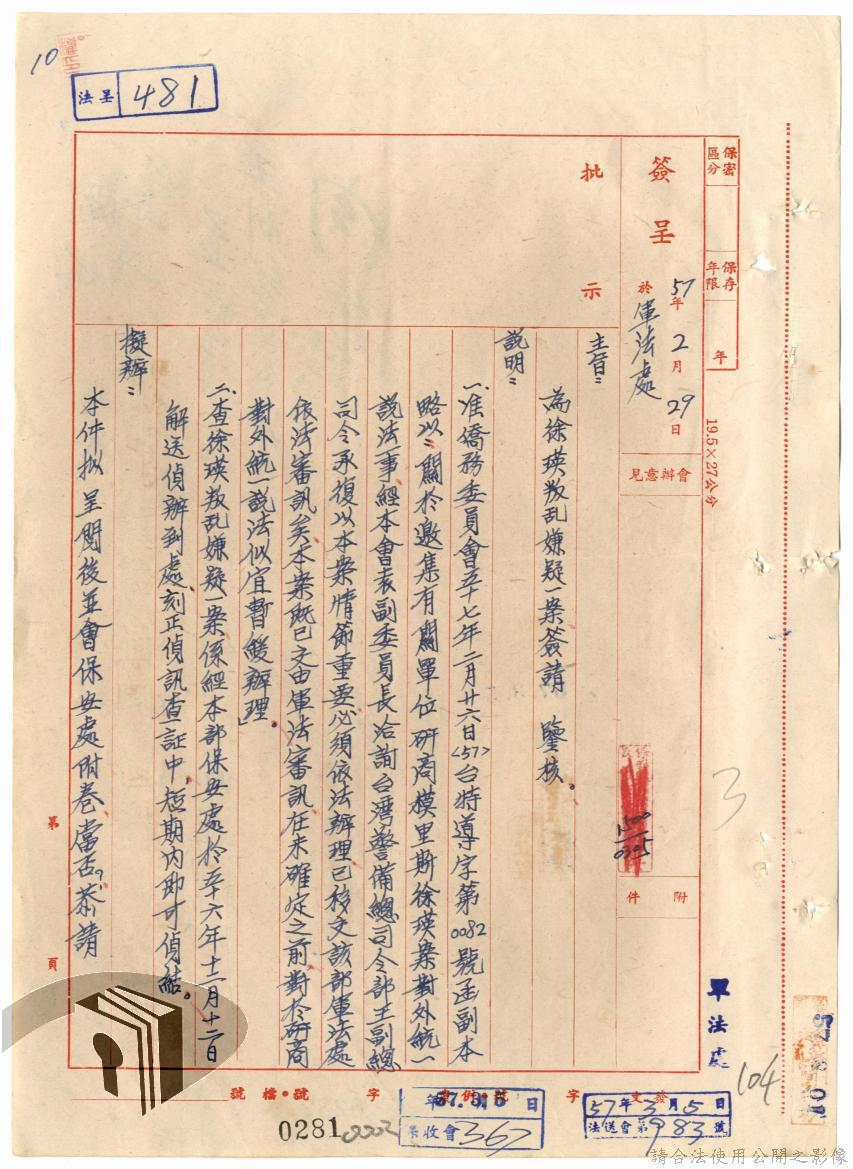 保密區分
保存年限
年
19.5×27公分
簽呈
57年2月29日
於軍法處
會辦意見
附件
批示
主旨：
為徐瑛叛乱嫌疑一案簽請 鑒核。
說明：
一、准僑務委員會五十七年二月廿六日(57)台特導字第0082號函副本
略以：關於邀集有關單位研商模里斯徐瑛案對外統一
說法一事經本會袁副委員長洽詢台灣警備總司令部王副總
司令承復以本案情節重要必須依法辦理已移交該部軍法處
依法審訊矣本案既已交由軍法審訊在未確定之前對於研商
對外統一說法似宜暫緩辦理」。
二、查徐瑛叛乱嫌疑一案係經本部保安處於五十六年十二月十二日
解送偵辦到處刻正偵訊查証中，短期內即可偵結。
擬辦：
本件拟呈閱後並會保安處附卷當否，恭請
第
頁
10
法呈 481
3
1500
0305
軍法處
104
發文
字
號
57年3月5日
法送會第983號
年57.3.5日
收會367
字
號•檔號
0281
0002
請合法使用公開之影像